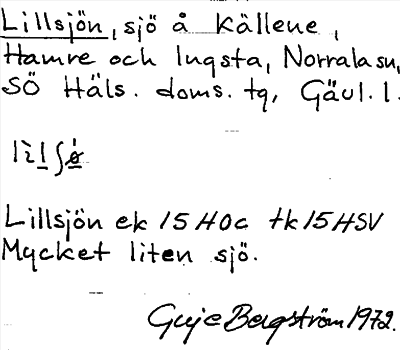 Lillsjön, sjö å Källene,
Hamre och Ingsta, Norrala sn,
SÖ Häls. doms. tg, Gävl. l.
Lillsjön ek 15 H0c tk 15 HSV
Mycket liten sjö.
Bergström 1972.